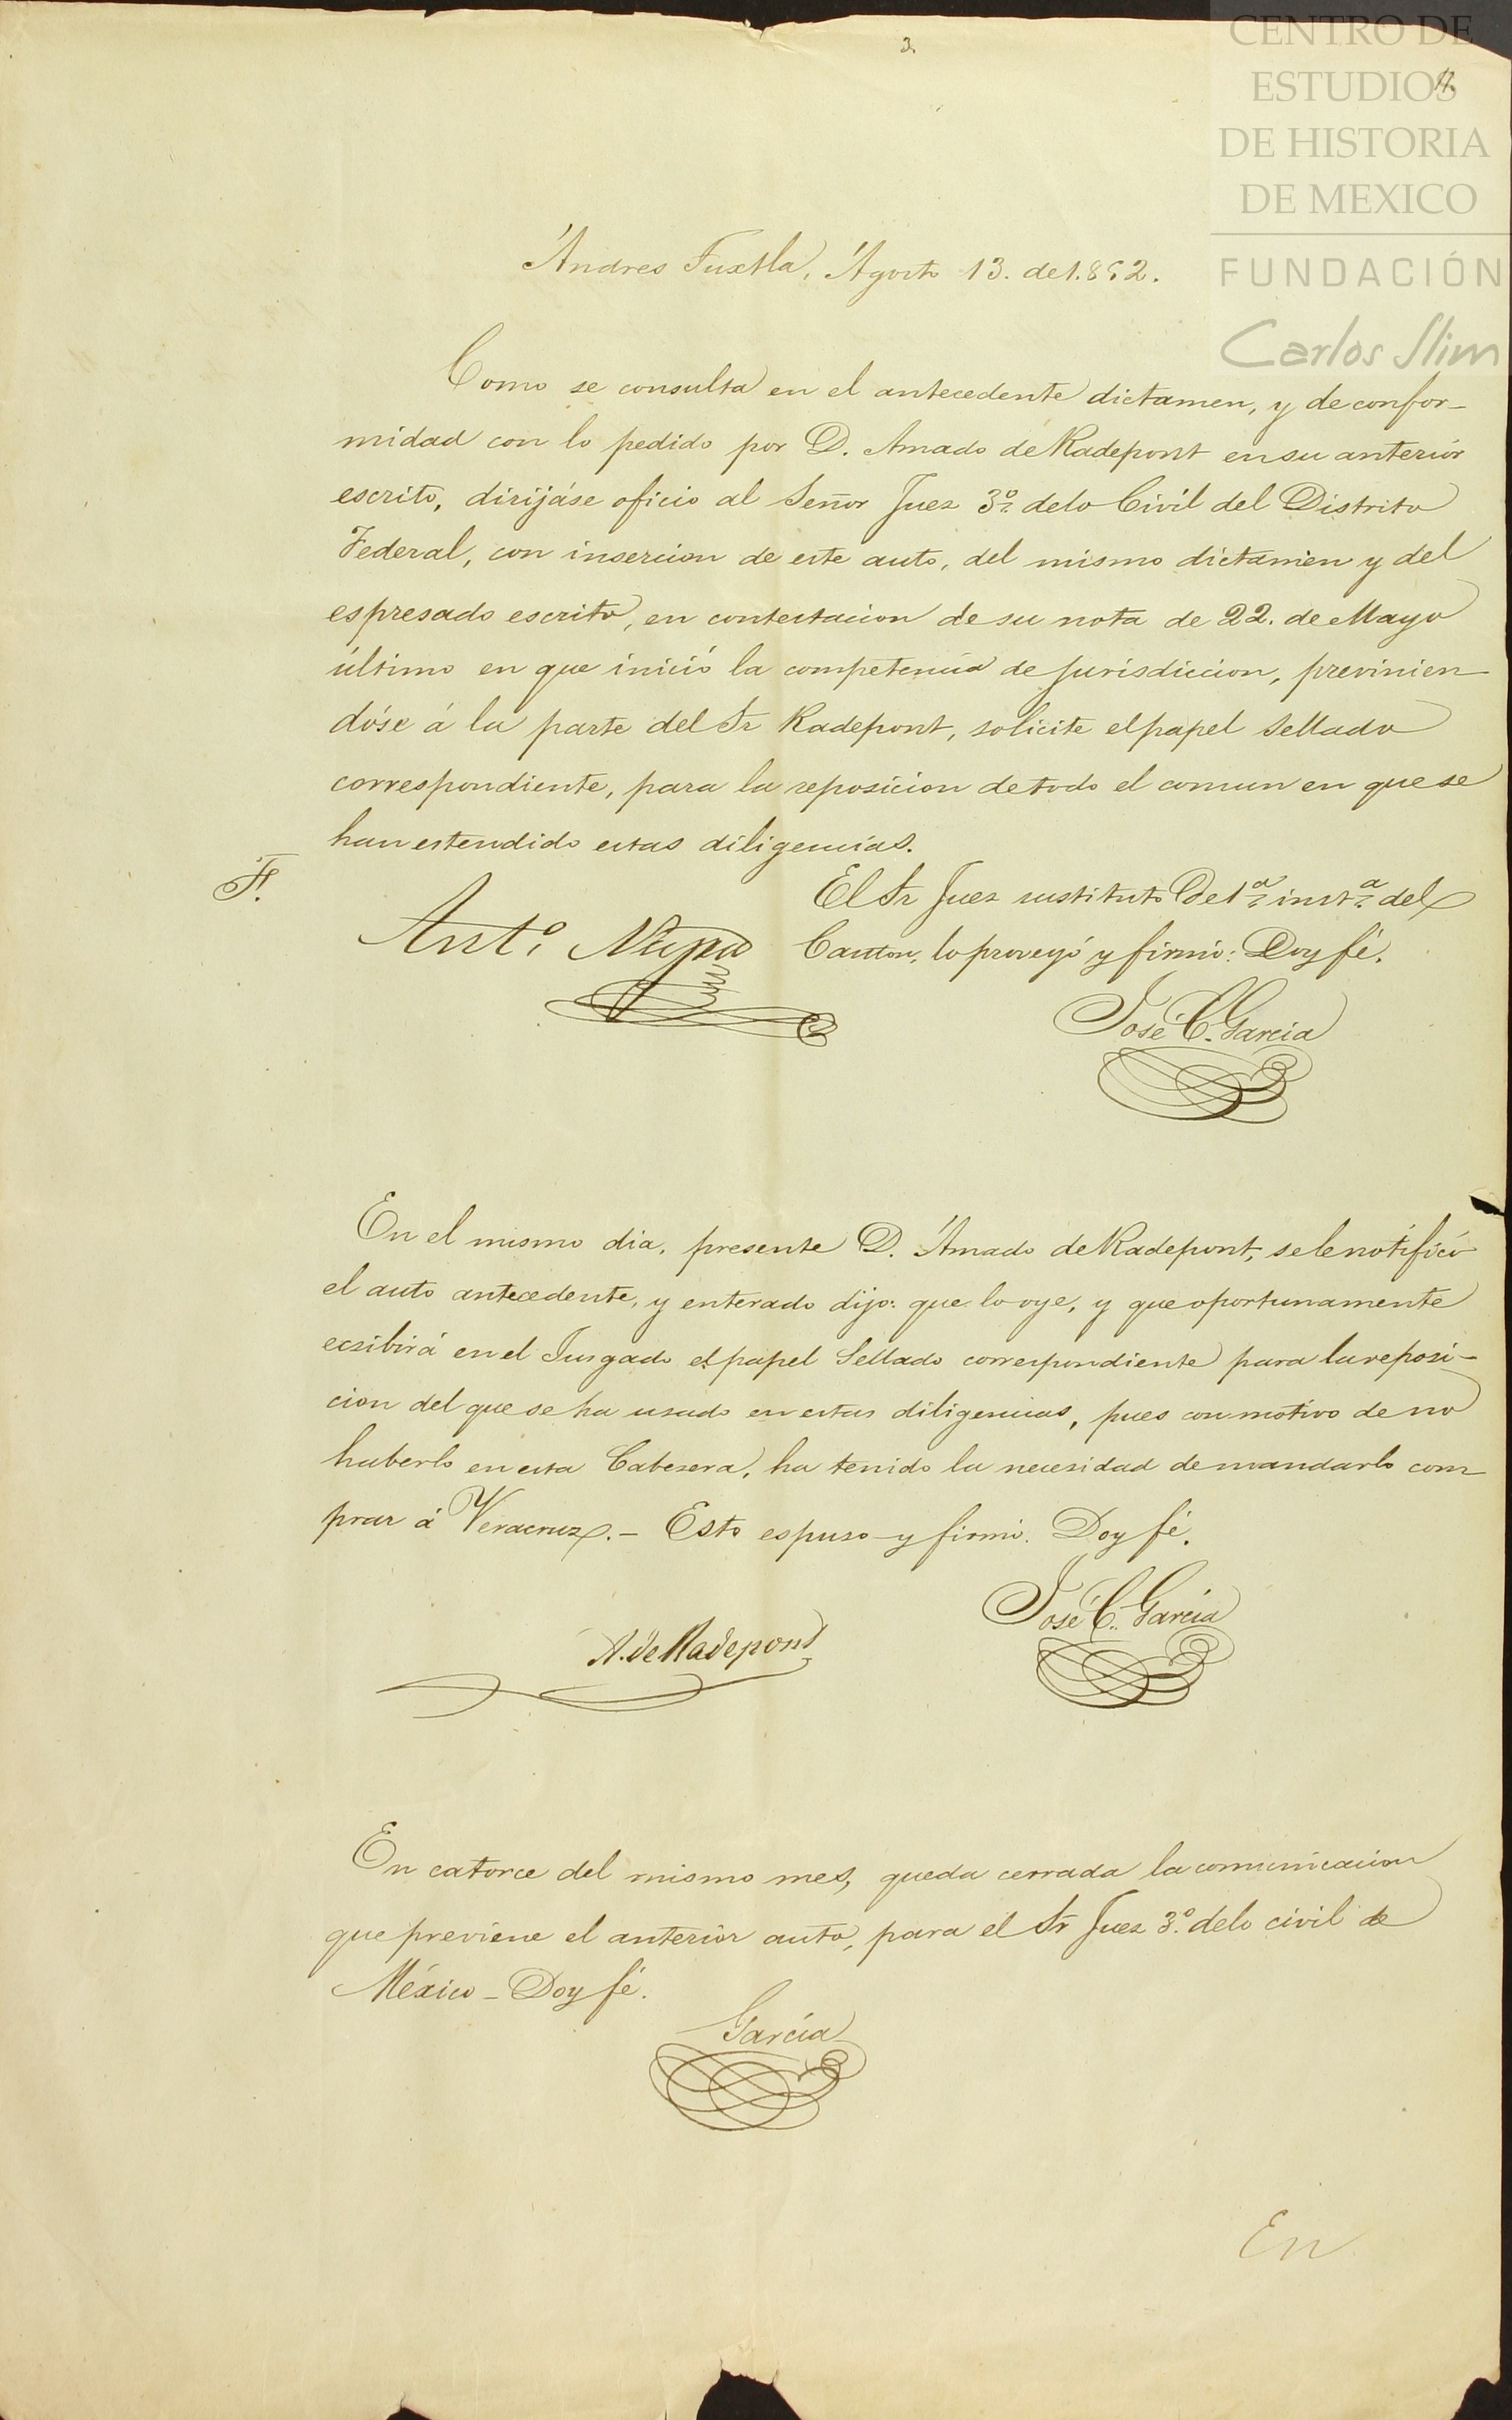 3.
CENTRO DE
ESTUDIOS
DE HISTORIA
DE MEXICO
FUNDACIÓN
Carlos Slim
Andres Tuxtla, Agosto 13. de 1.862.
Como se consulta en el antecedente dictamen, y de confor-
midad con lo pedido por D. Amado de Radepont en su anterior
escrito, dirijáse oficio al Señor Juez 3º de lo Civil del Distrito
Federal, con insercion de este auto, del mismo dictamen y del
espresado escrito, en contestacion de su nota de 22. de Mayo
último en que inició la competencia de jurisdiccion, previnien-
dóse á la parte del Sr Radepont, solicite el papel Sellado
correspondiente, para la reposicion de todo el comun en que se
han estendido estas diligencias.
F.
El Sr Juez sustituto De 1ª inst.ª del
Canton, lo proveyó y firmó: Doy fé.
Antº.
José C. Garcia
En el mismo dia, presente D. Amado de Radepont, se le notificó
el auto antecedente, y enterado dijo: que lo oye, y que oportunamente
ecsibirá en el Jusgado el papel Sellado correspondiente para la reposi-
cion del que se ha usado en estas diligencias, pues con motivo de no
haberlo en esta Cabesera, ha tenido la necesidad de mandarlo com-
prar á Veracruz.- Esto espuso y firmó. Doy fé.
José C. Garcia
A. de Radepont
En catorce del mismo mes, queda cerrada la comunicacion
que previene el anterior auto, para el Sr Juez 3.º de lo civil de
México - Doy fé.
Garcia
En